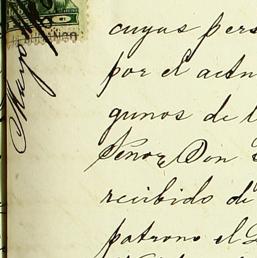 Mayo
cuyas pers
por el actu
gunos de l
Señor Don
recibido de
patrono el L